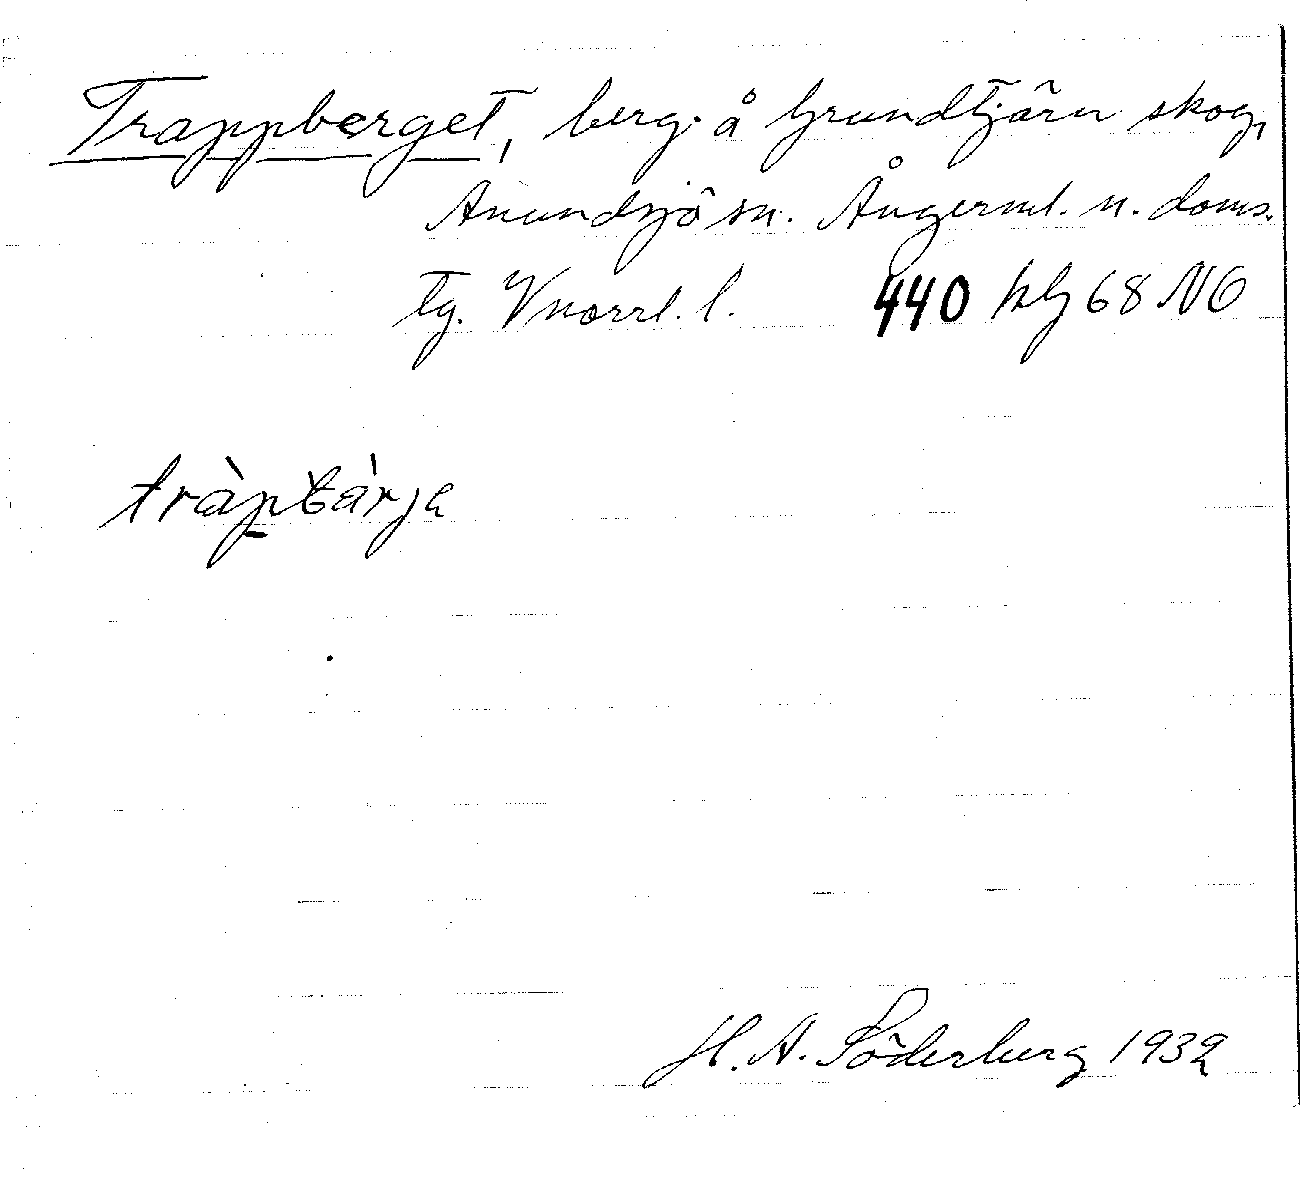 Trappberget, berg å Grundtjärn skog,
Anundsjö sn. Ångerml. n. doms.
tg. Vnorrl. l. 440 hbj 68 NO
tràpbàrja
H. A. Söderberg 1932